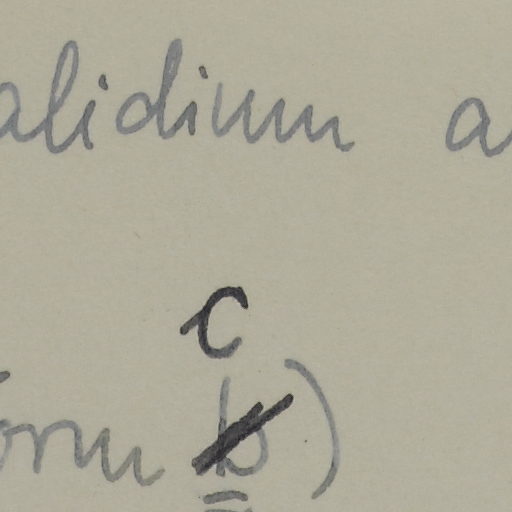 alidium a
c
orm b)